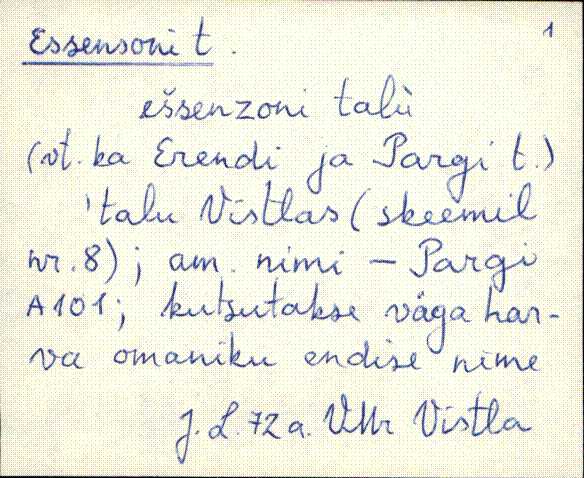 Essensoni t. 1
ešsenzoni talù
(vt. ka Erendi ja Pargi t.)
'talu Vistlas (skeemil
nr. 8); am. nimi – Pargi
A101; kutsutakse väga har-
va omaniku endise nime
J. L. 72 a. VMr Vistla